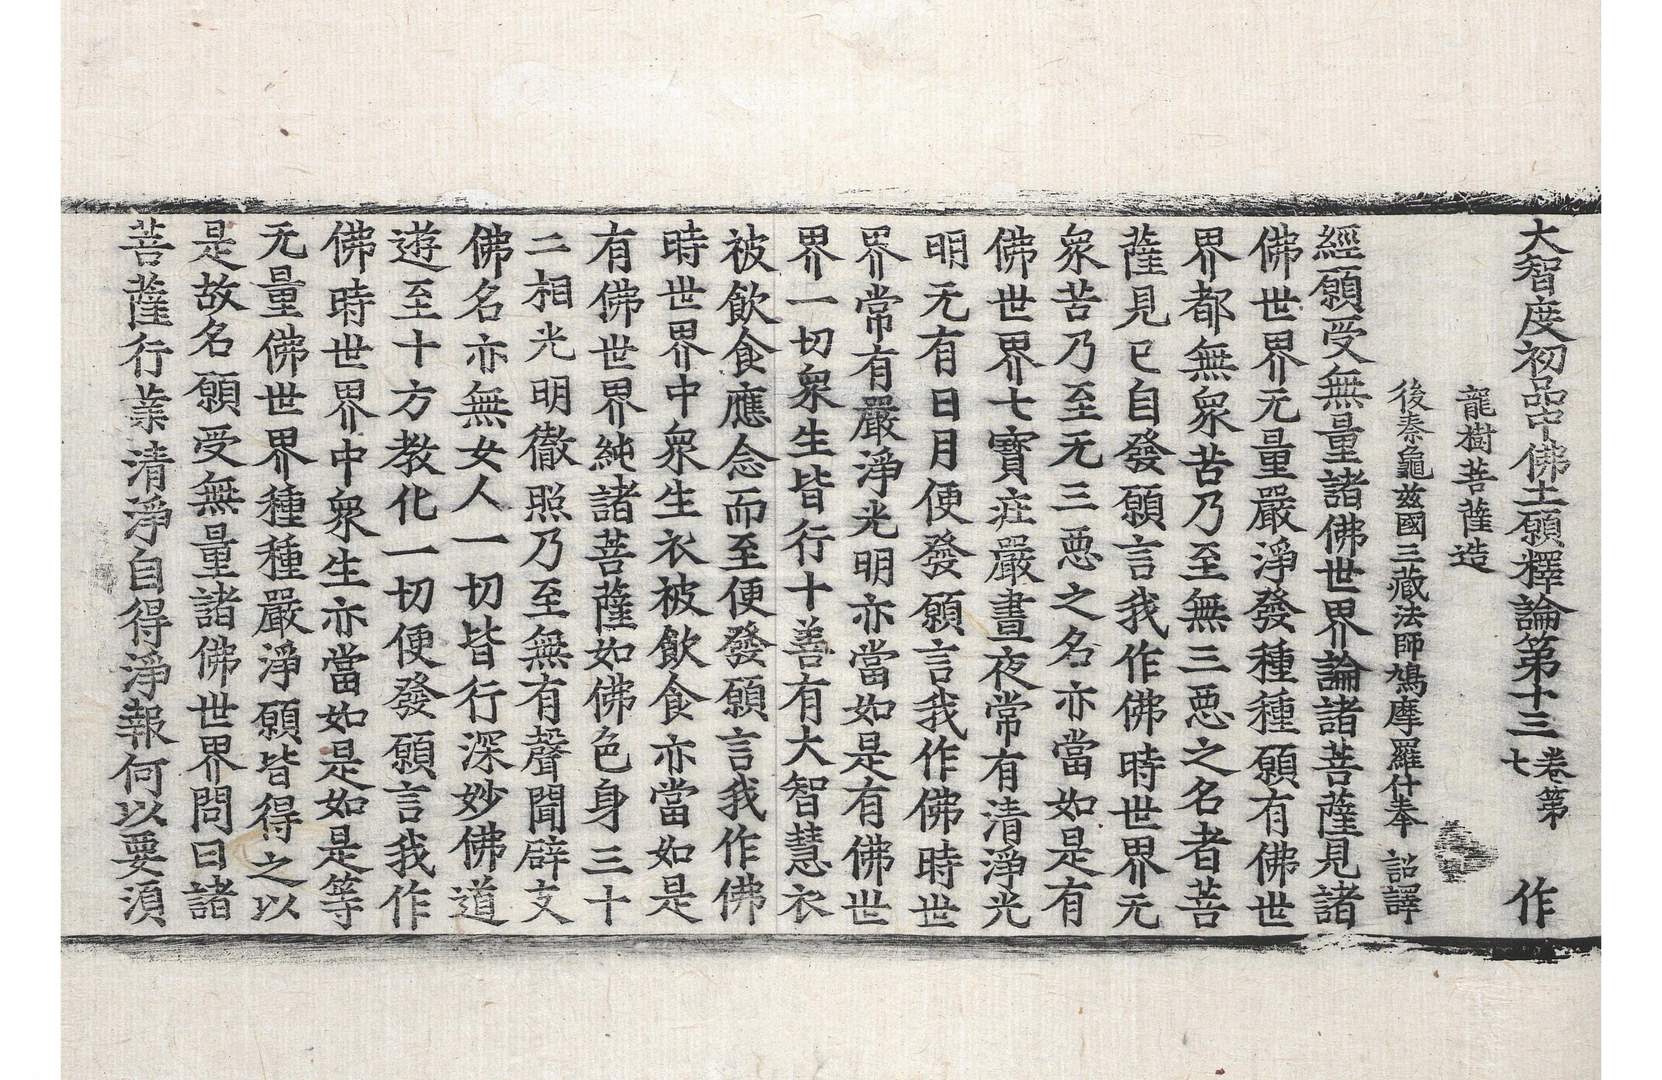 大智度初品中佛土願釋論第十三 卷第七 作
龍樹菩薩造
後秦龜兹國三藏法師鳩摩羅什奉 詔譯
經願受無量諸佛世界論諸菩薩見諸
佛世界无量嚴淨發種種願有佛世
界都無衆苦乃至無三𢙣之名者菩
薩見已自發願言我作佛時世界无
衆苦乃至无三𢙣之名亦當如是有
佛世界七寶莊嚴晝夜常有清淨光
明无有日月便發願言我作佛時世
界常有嚴淨光明亦當如是有佛世
界一切衆生皆行十善有大智慧衣
被飲食應念而至便發願言我作佛
時世界中衆生衣被飲食亦當如是
有佛世界純諸菩薩如佛色身三十
二相光明徹照乃至無有聲聞辟支
佛名亦無女人一切皆行深妙佛道
遊至十方教化一切便發願言我作
佛時世界中衆生亦當如是如是等
无量佛世界種種嚴淨願皆得之以
是故名願受無量諸佛世界問曰諸
菩薩行業清淨自得淨報何以要湏